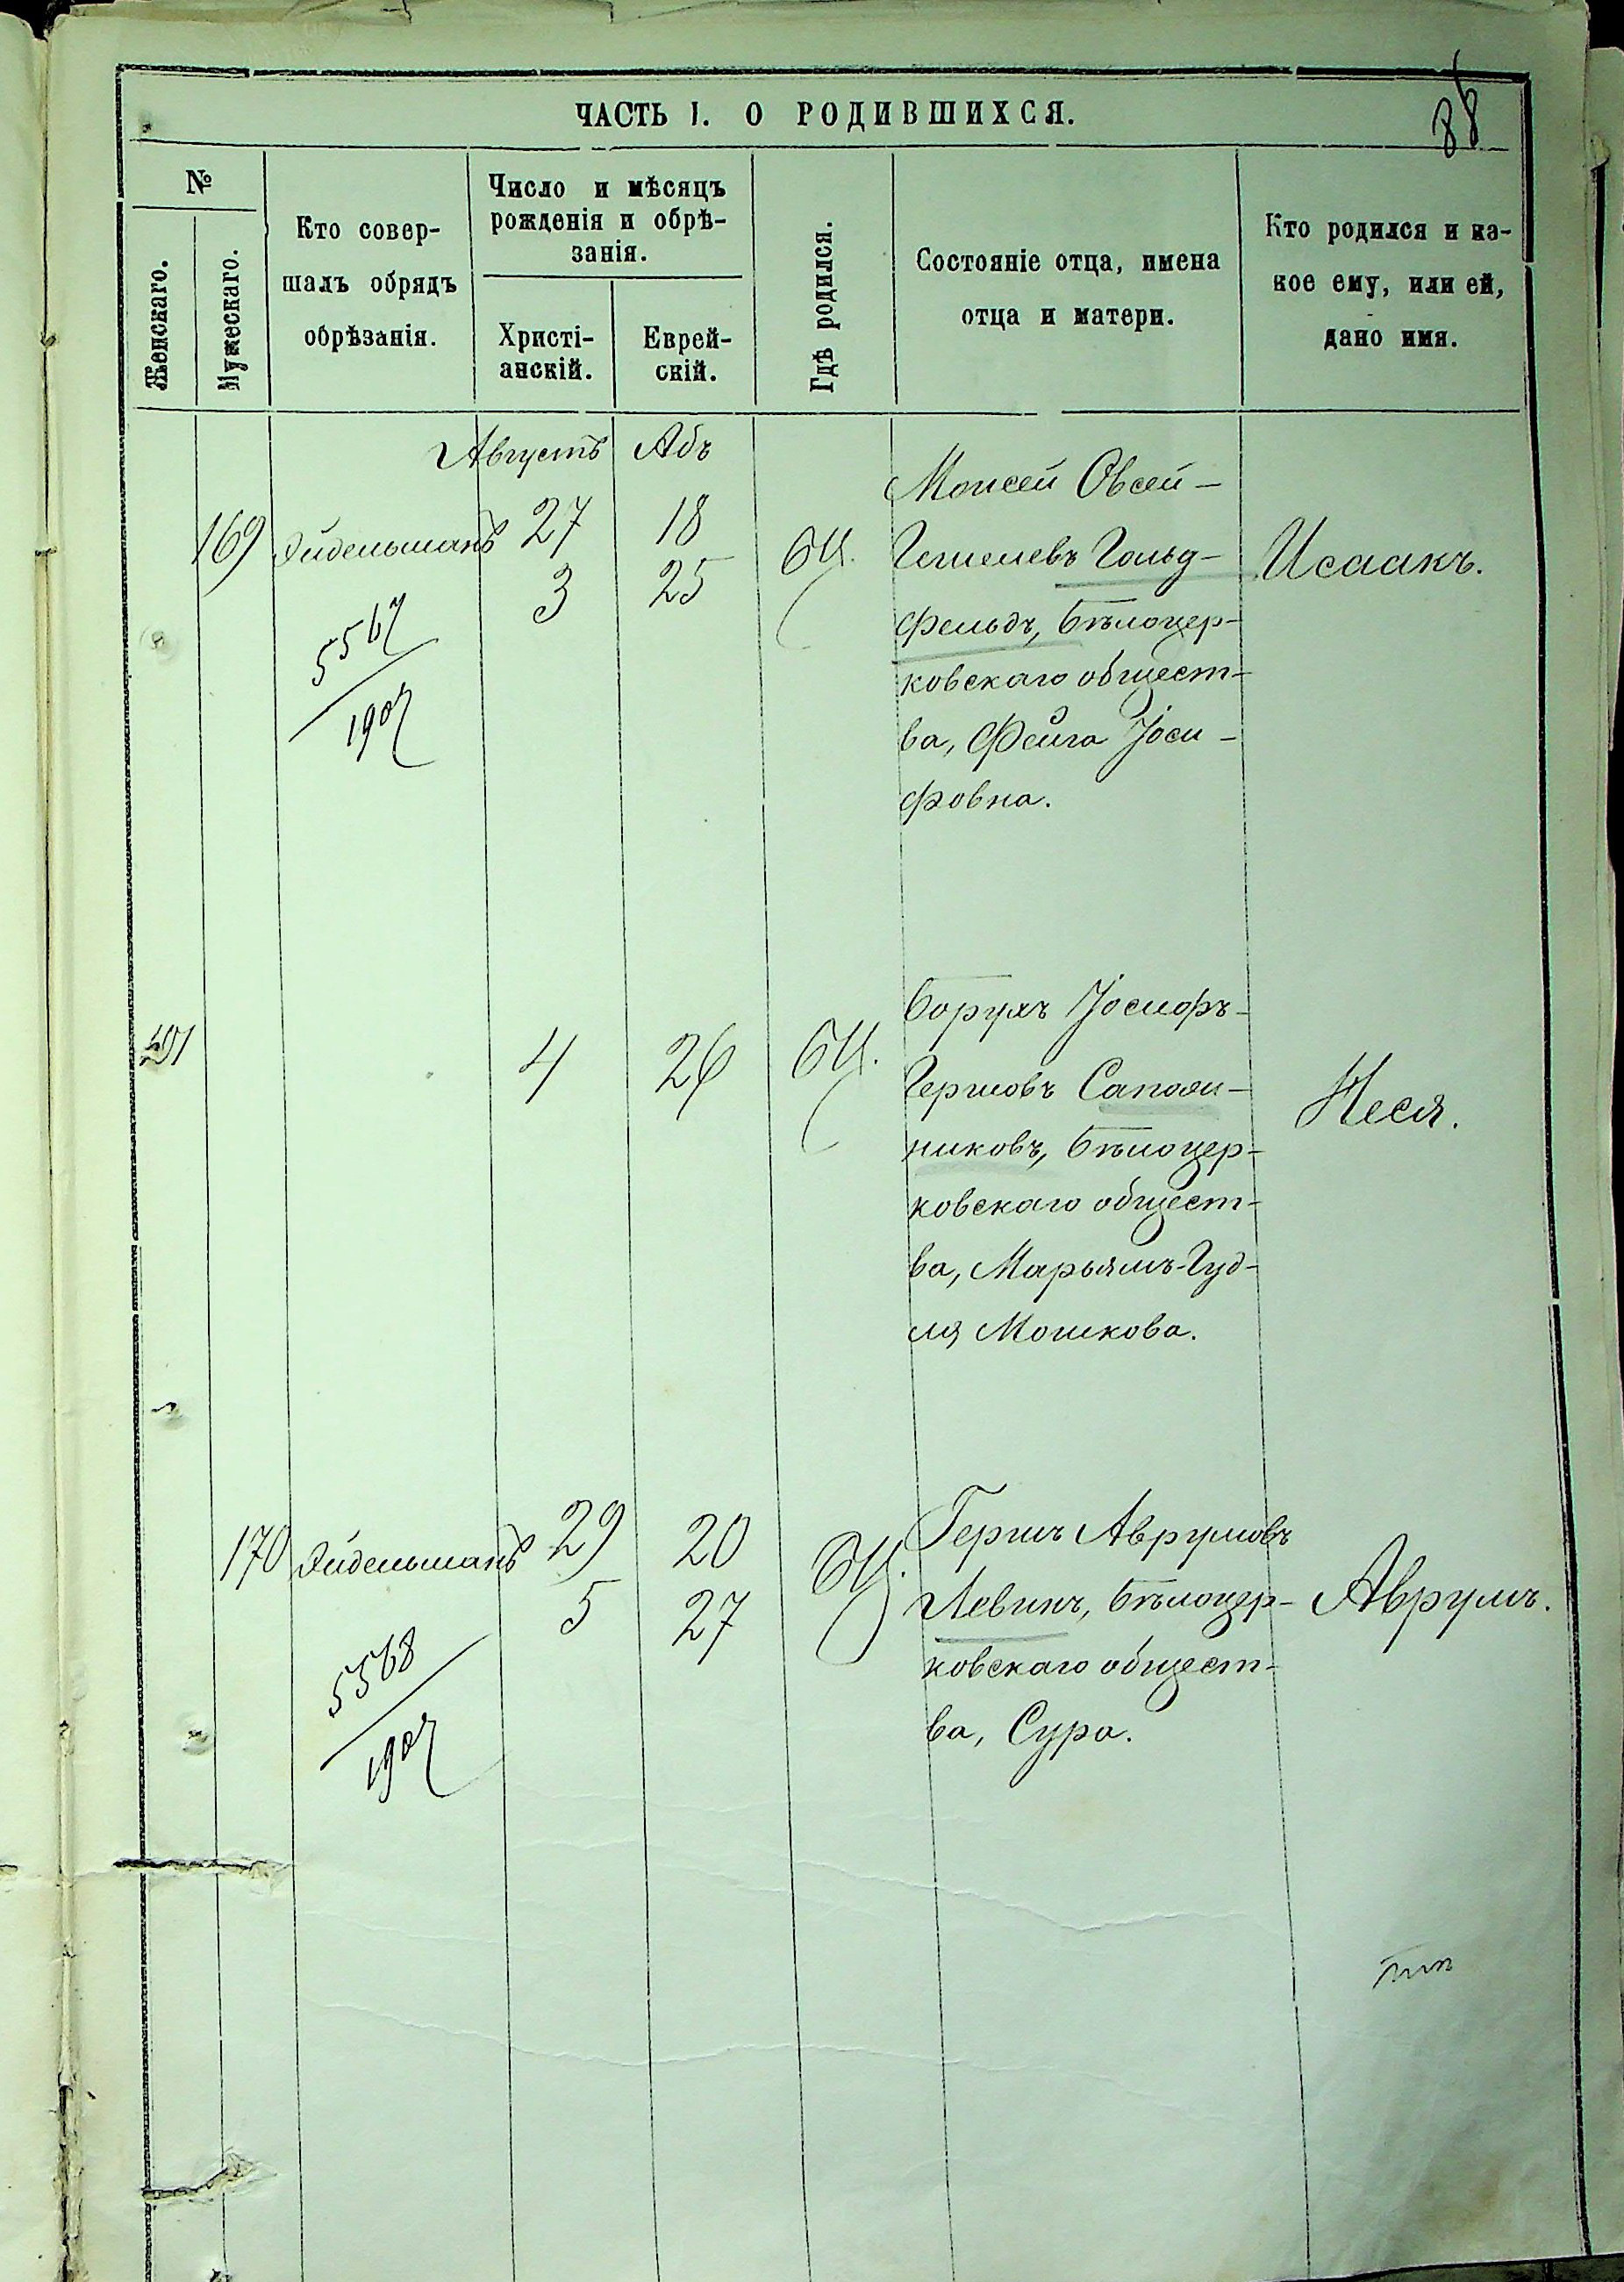 88
ЧАСТЬ I. О РОДИВШИХСЯ.
№
Женскаго.
Мужескаго.
Кто совер-
шалъ обрядъ
обрѣзанія.
Число и мѣсяцъ
рожденія и обрѣ-
занія.
Христі-
анскій.
Еврей-
скій.
Гдѣ родился.
Состояніе отца, имена
отца и матери.
Кто родился и ка-
кое ему, или ей,
дано имя.
Августъ Абъ
169 Эйдельманъ 27 18 БЦ.
3 25
5567
1907
Моисей Овсей-
Гешелевъ Гольд-
фельдъ, Бѣлоцер-
ковскаго общест-
ва, Фейга Іоси-
фовна.
Исаакъ.
4 26 БЦ.
Борухъ Іосифъ-
Гершовъ Сапож-
никовъ, Бѣлоцер-
ковскаго общест-
ва, Марьямъ-Гуд-
ля Мошкова.
Неся.
170 Эйдельманъ 29 20 БЦ.
5 27
5568
1907
Гершъ Аврумовъ
Левинъ, Бѣлоцер-
ковскаго общест-
ва, Сура.
Аврумъ.